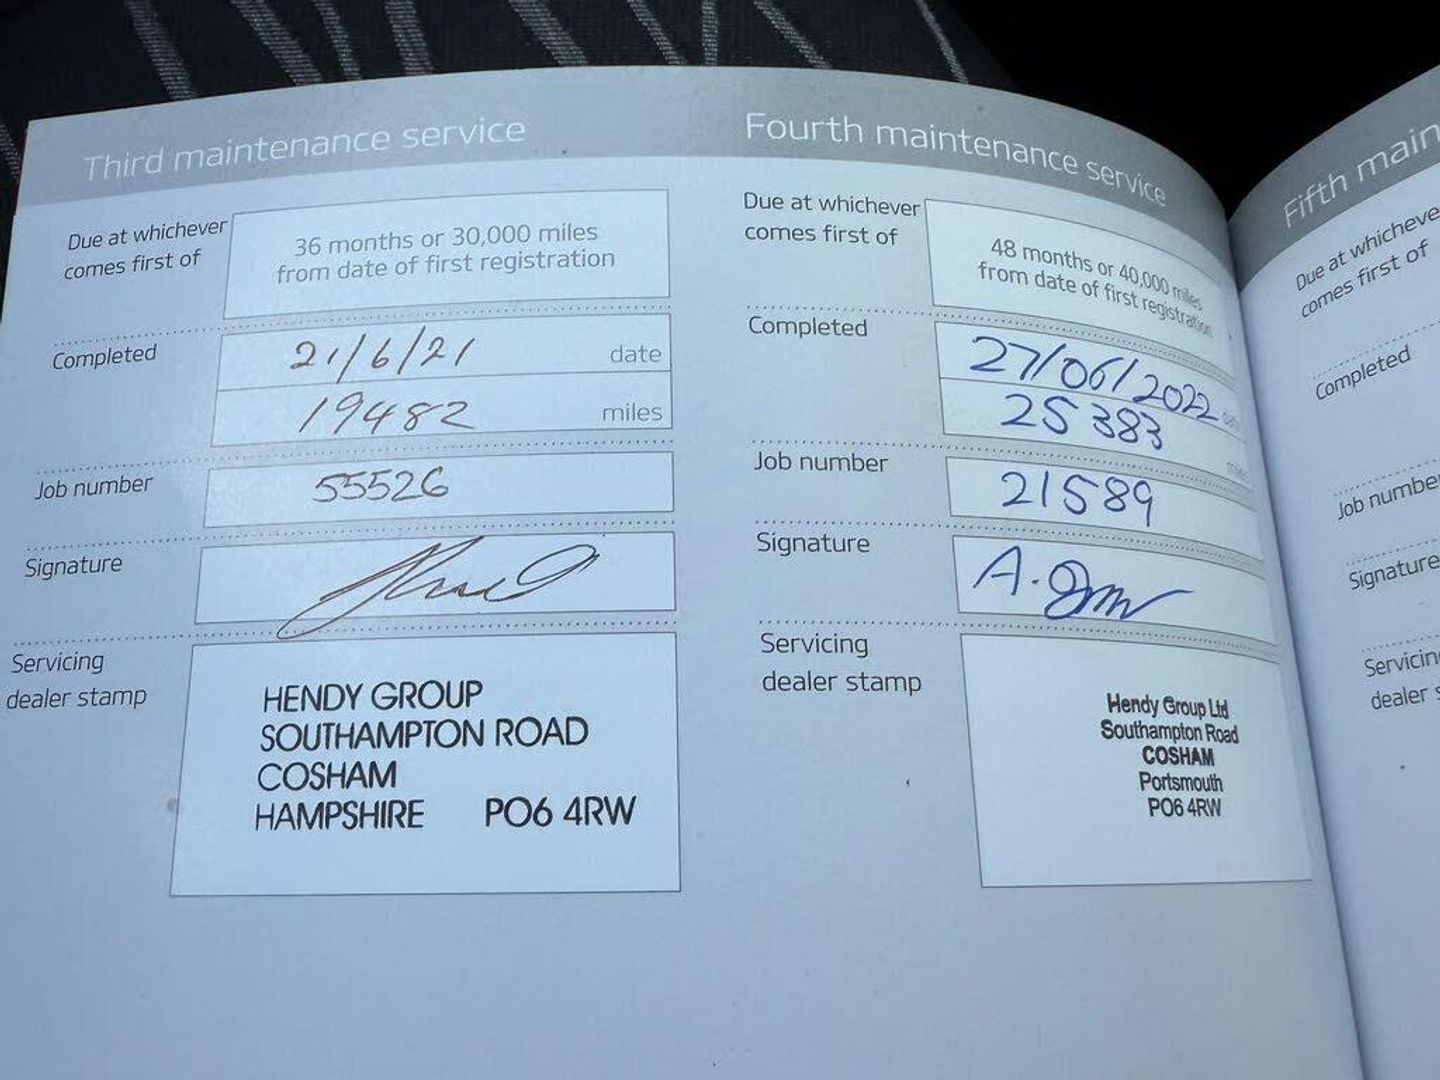 Third maintenance service
Due at whichever
comes first of
36 months or 30,000 miles
from date of first registration
Completed
21/6/21 date
19482 miles
Job number
55526
Signature
Servicing
dealer stamp
HENDY GROUP
SOUTHAMPTON ROAD
COSHAM
HAMPSHIRE PO6 4RW
Fourth maintenance service
Due at whichever
comes first of
48 months or 40,000 miles
from date of first registration
Completed
27/06/2022
25383
Job number
21589
Signature
A.
Servicing
dealer stamp
Hendy Group Ltd
Southampton Road
COSHAM
Portsmouth
PO6 4RW
Fifth main
Due at whicheve
comes first of
Completed
Job numbe
Signature
Servicin
dealer s